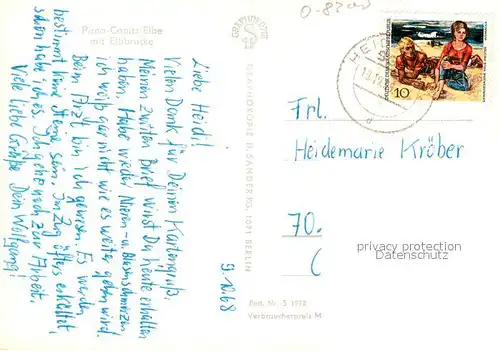 Pirna-Copitz/Elbe
mit Elbbrücke
9.10.68
Liebe Heidi!
Vielen Dank für Deinen Kartengruß.
Meinen zweiten Brief wirst Du heute erhalten
haben. Habe wieder Nieren- u. Blasenschmerzen
ich weiß gar nicht wie es weiter gehen wird.
Beim Arzt bin ich gewesen. Es werden
bestimmt keine Steine sein. Im Zug öfters erkältet,
schon habe ich es. Ich gehe noch zur Arbeit.
Viele liebe Grüße Dein Wolfgang!
GRAPHOKOPIE
GRAPHOKOPIE H. SANDER KG, 1071 BERLIN
Best. Nr. 5 1978
Verbraucherpreis M
10
Frl.
Heidemarie Kröber
70.
C
privacy protection
Datenschutz